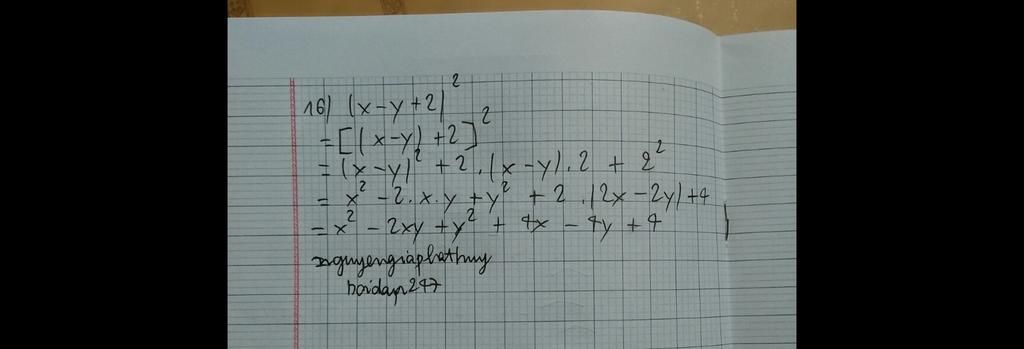 16) (x-y+2)²
= [(x-y)+2]²
= (x-y)² + 2.(x-y).2 + 2²
= x² - 2.x.y + y² + 2.(2x-2y)+4
= x² - 2xy + y² + 4x - 4y + 4
nguyengiaphathuy
hoidap247